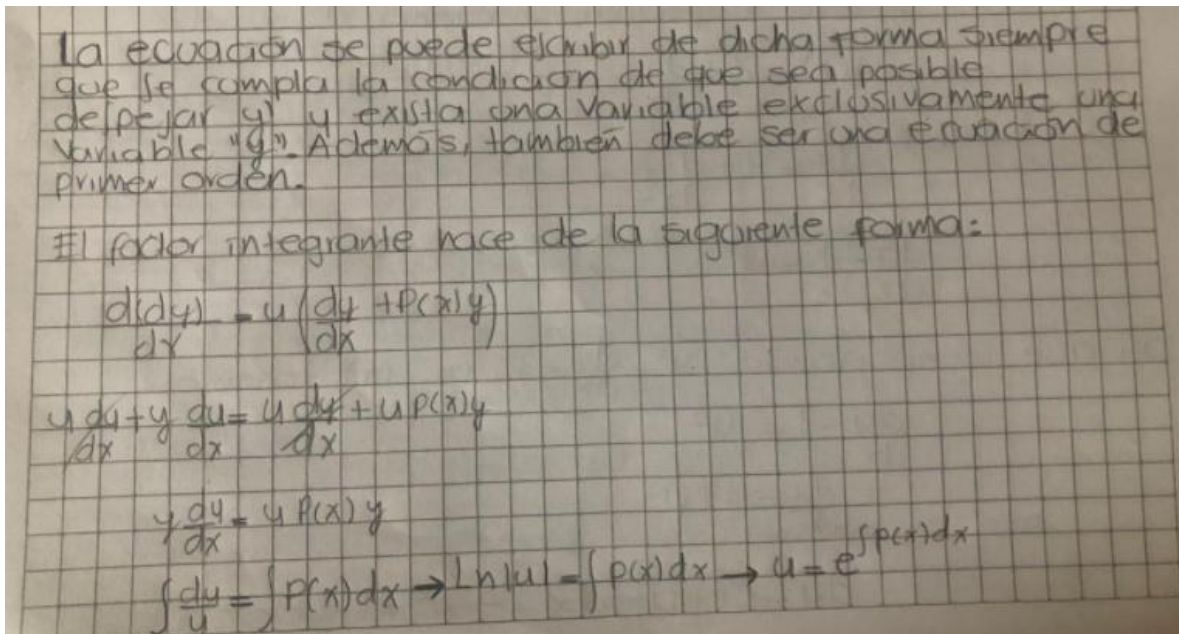 La ecuación se puede escribir de dicha forma siempre
que se cumpla la condición de que sea posible
despejar y' y exista una variable exclusivamente una
variable "y". Además, también debe ser una ecuación de
primer orden.
El factor integrante nace de la siguiente forma:
d(dy)/dx = u (dy/dx + P(x)y)
u dy/dx + y du/dx = u dy/dx + u P(x)y
y du/dx = u P(x) y
∫ du/u = ∫ P(x)dx → Ln|u| = ∫ p(x)dx → u = e^∫p(x)dx